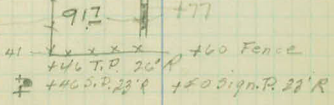 917
+77
41
+60 Fence
+46 T.P. 26' R
+46 S.P. 23' R
+40 Sign.P. 22' R